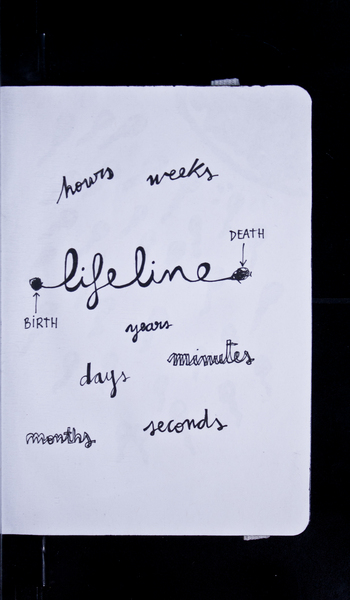 hours weeks
DEATH
lifeline
BiRTH
years
minutes
days
seconds
months